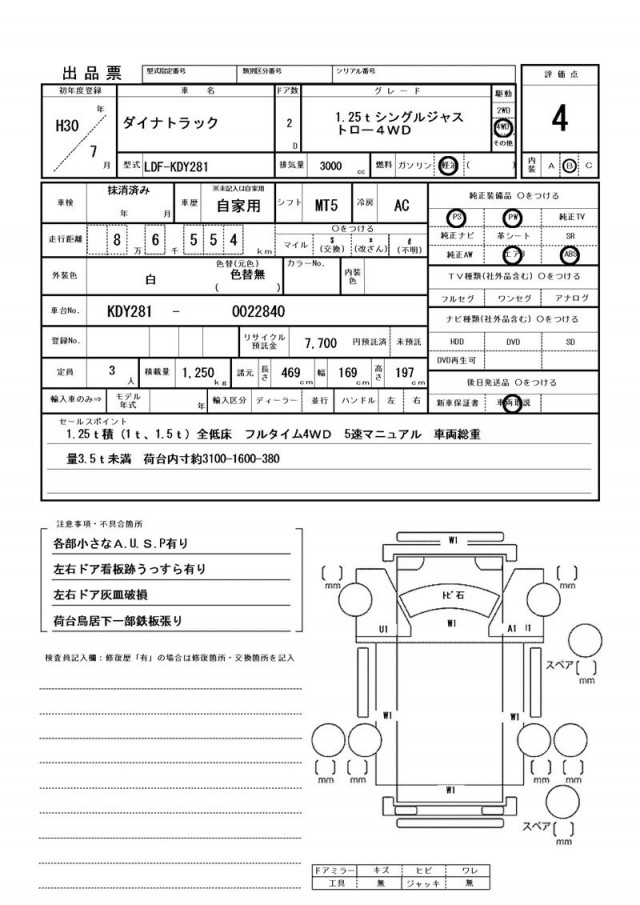 出品票 型式指定番号 類別区分番号 シリアル番号
評価点
4
初年度登録 車名 ドア数 グレード 駆動
H30 年 / 7 月 ダイナトラック 2 D 1.25tシングルジャス
トロー4WD
2WD
4WD
その他
型式 LDF-KDY281 排気量 3000 cc 燃料 ガソリン 軽油 ( ) 内装 A B C
車検 抹消済み 年 月 車歴 ※未記入は自家用 自家用 シフト MT5 冷房 AC
純正装備品 〇をつける
走行距離 8 万 6 千 5 5 4 km 〇をつける
マイル $ (交換) * (改ざん) # (不明)
PS PW 純正TV
純正ナビ 革シート SR
純正AW エアB ABS
外装色 白 色替(元色) 色替無 ( ) カラーNo. 内装色
TV種類(社外品含む) 〇をつける
フルセグ ワンセグ アナログ
車台No. KDY281 - 0022840
ナビ種類(社外品含む) 〇をつける
登録No. リサイクル預託金 7,700 円預託済 未預託
HDD DVD SD
DVD再生可
定員 3 人 積載量 1,250 kg 諸元 長さ 469 cm 幅 169 cm 高さ 197 cm
後日発送品 〇をつける
輸入車のみ⇒ モデル年式 年 輸入区分 ディーラー 並行 ハンドル 左 右
新車保証書 車両取説
セールスポイント
1.25t積(1t、1.5t)全低床 フルタイム4WD 5速マニュアル 車両総重
量3.5t未満 荷台内寸約3100-1600-380
注意事項・不具合箇所
各部小さなA.U.S.P有り
左右ドア看板跡うっすら有り
左右ドア灰皿破損
荷台鳥居下一部鉄板張り
検査員記入欄:修復歴「有」の場合は修復箇所・交換箇所を記入
W1
[ ] mm
[ ] mm
トビ石
W1
U1
A1
スペア [ ] mm
W1
W1
[ ] mm
[ ] mm
[ ] mm
[ ] mm
W1
スペア [ ] mm
ドアミラー キズ ヒビ ワレ
工具 無 ジャッキ 無